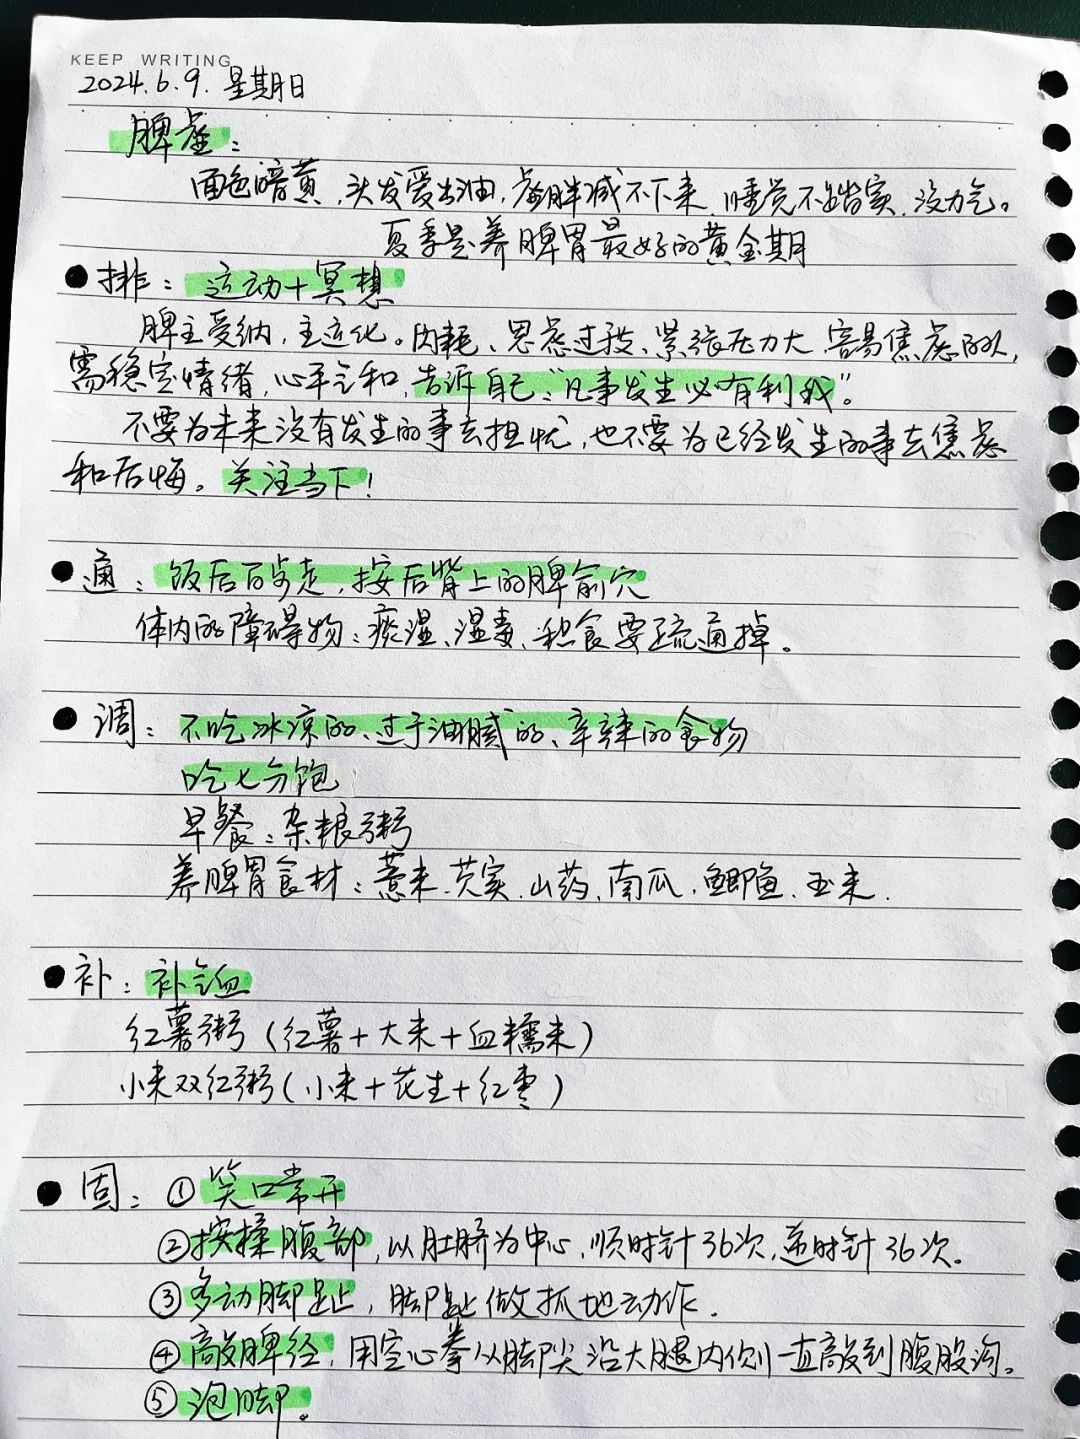 KEEP WRITING
2024.6.9. 星期日
脾虚：
面色暗黄、头发爱出油，虚胖减不下来、睡觉不踏实、没力气。
夏季是养脾胃最好的黄金期
●排：运动+冥想
脾主受纳，主运化。内耗、思虑过段、紧张压力大、容易焦虑的人，
需稳定情绪，心平气和，告诉自己："凡事发生必有利我"。
不要为未来没有发生的事去担忧，也不要为已经发生的事去焦虑
和后悔。关注当下！
●通：饭后百步走，按后背上的脾俞穴
体内的障碍物：痰湿、湿毒、积食要疏通掉。
●调：不吃冰凉的、过于油腻的、辛辣的食物
吃七分饱
早餐：杂粮粥
养脾胃食材：薏米、芡实、山药、南瓜、鲫鱼、玉米.
●补：补气血
红薯粥（红薯+大米+血糯米）
小米双红粥（小米+花生+红枣）
●固：①笑口常开
②按揉腹部，以肚脐为中心，顺时针36次，逆时针36次。
③多动脚趾，脚趾做抓地动作.
④敲脾经，用空心拳从脚尖沿大腿内侧一直敲到腹股沟。
⑤泡脚。